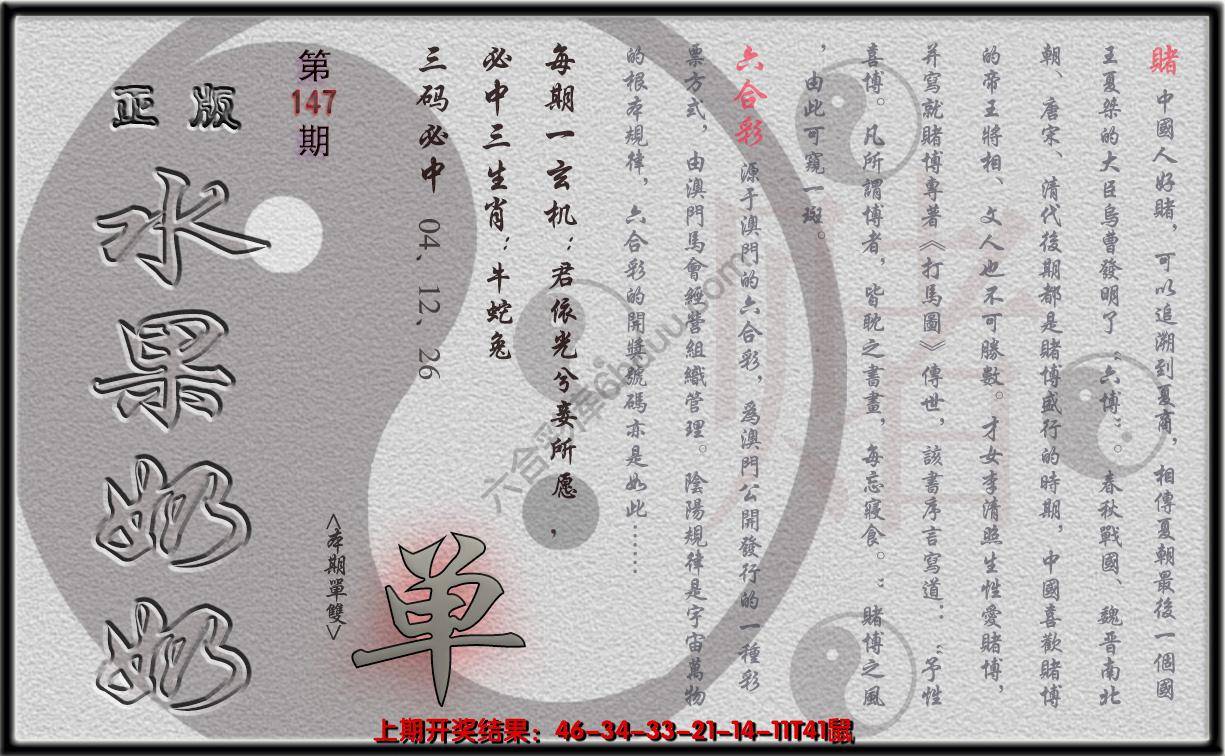 賭 中國人好賭，可以追溯到夏商，相傳夏朝最後一個國
王夏桀的大臣烏曹發明了“六博”。春秋戰國、魏晋南北
朝、唐宋、清代後期都是賭博盛行的時期，中國喜歡賭博
的帝王將相、文人也不可勝數。才女李清照生性愛賭博，
并寫就賭博專著《打馬圖》傳世，該書序言寫道：“予性
喜博。凡所謂博者，皆耽之書畫，每忘寢食。”賭博之風
，由此可窺一斑。
六合彩 源于澳門的六合彩，爲澳門公開發行的一種彩
票方式，由澳門馬會經營組織管理。陰陽規律是宇宙萬物
的根本規律，六合彩的開獎號碼亦是如此……
每期一玄机：君依光兮妾所愿，
必中三生肖：牛蛇兔
三码必中 04、12、26
第147期
正版
水果奶奶
<本期單雙>
单
賭
六合彩库6hduu.com
上期开奖结果：46-34-33-21-14-11T41鼠